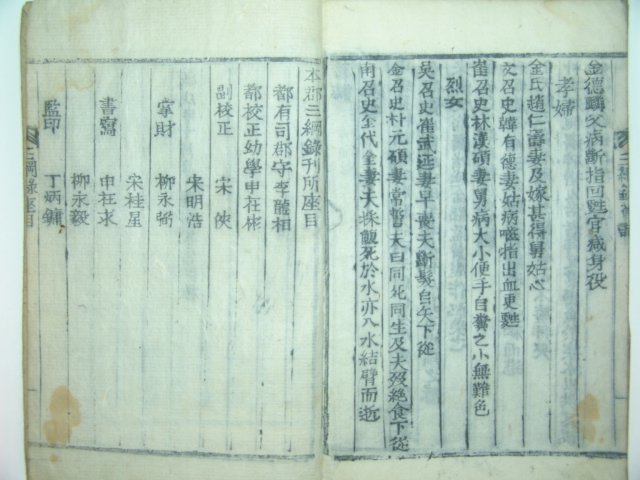 金德麟父病斷指回甦官減身役
孝婦
金氏趙仁壽妻及嫁甚得舅姑心
文召史韓有德妻姑病嚙指出血更甦
崔召史林漢碩妻舅病大小便手自糞之小無難色
烈女
吳召史崔武延妻早喪夫斷髮自矢下從
金召史朴元碩妻常誓夫曰同死同生及夫歿絕食下從
南召史金代金妻夫
死於水亦入水結臂而逝
本郡三綱錄刊所座目
都有司郡守李
相
都校正幼學申在彬
副校正 宋
宋明浩
掌財 柳永弼
宋桂星
書寫 申在求
柳永毅
監印 丁炳鏞
三綱錄座目